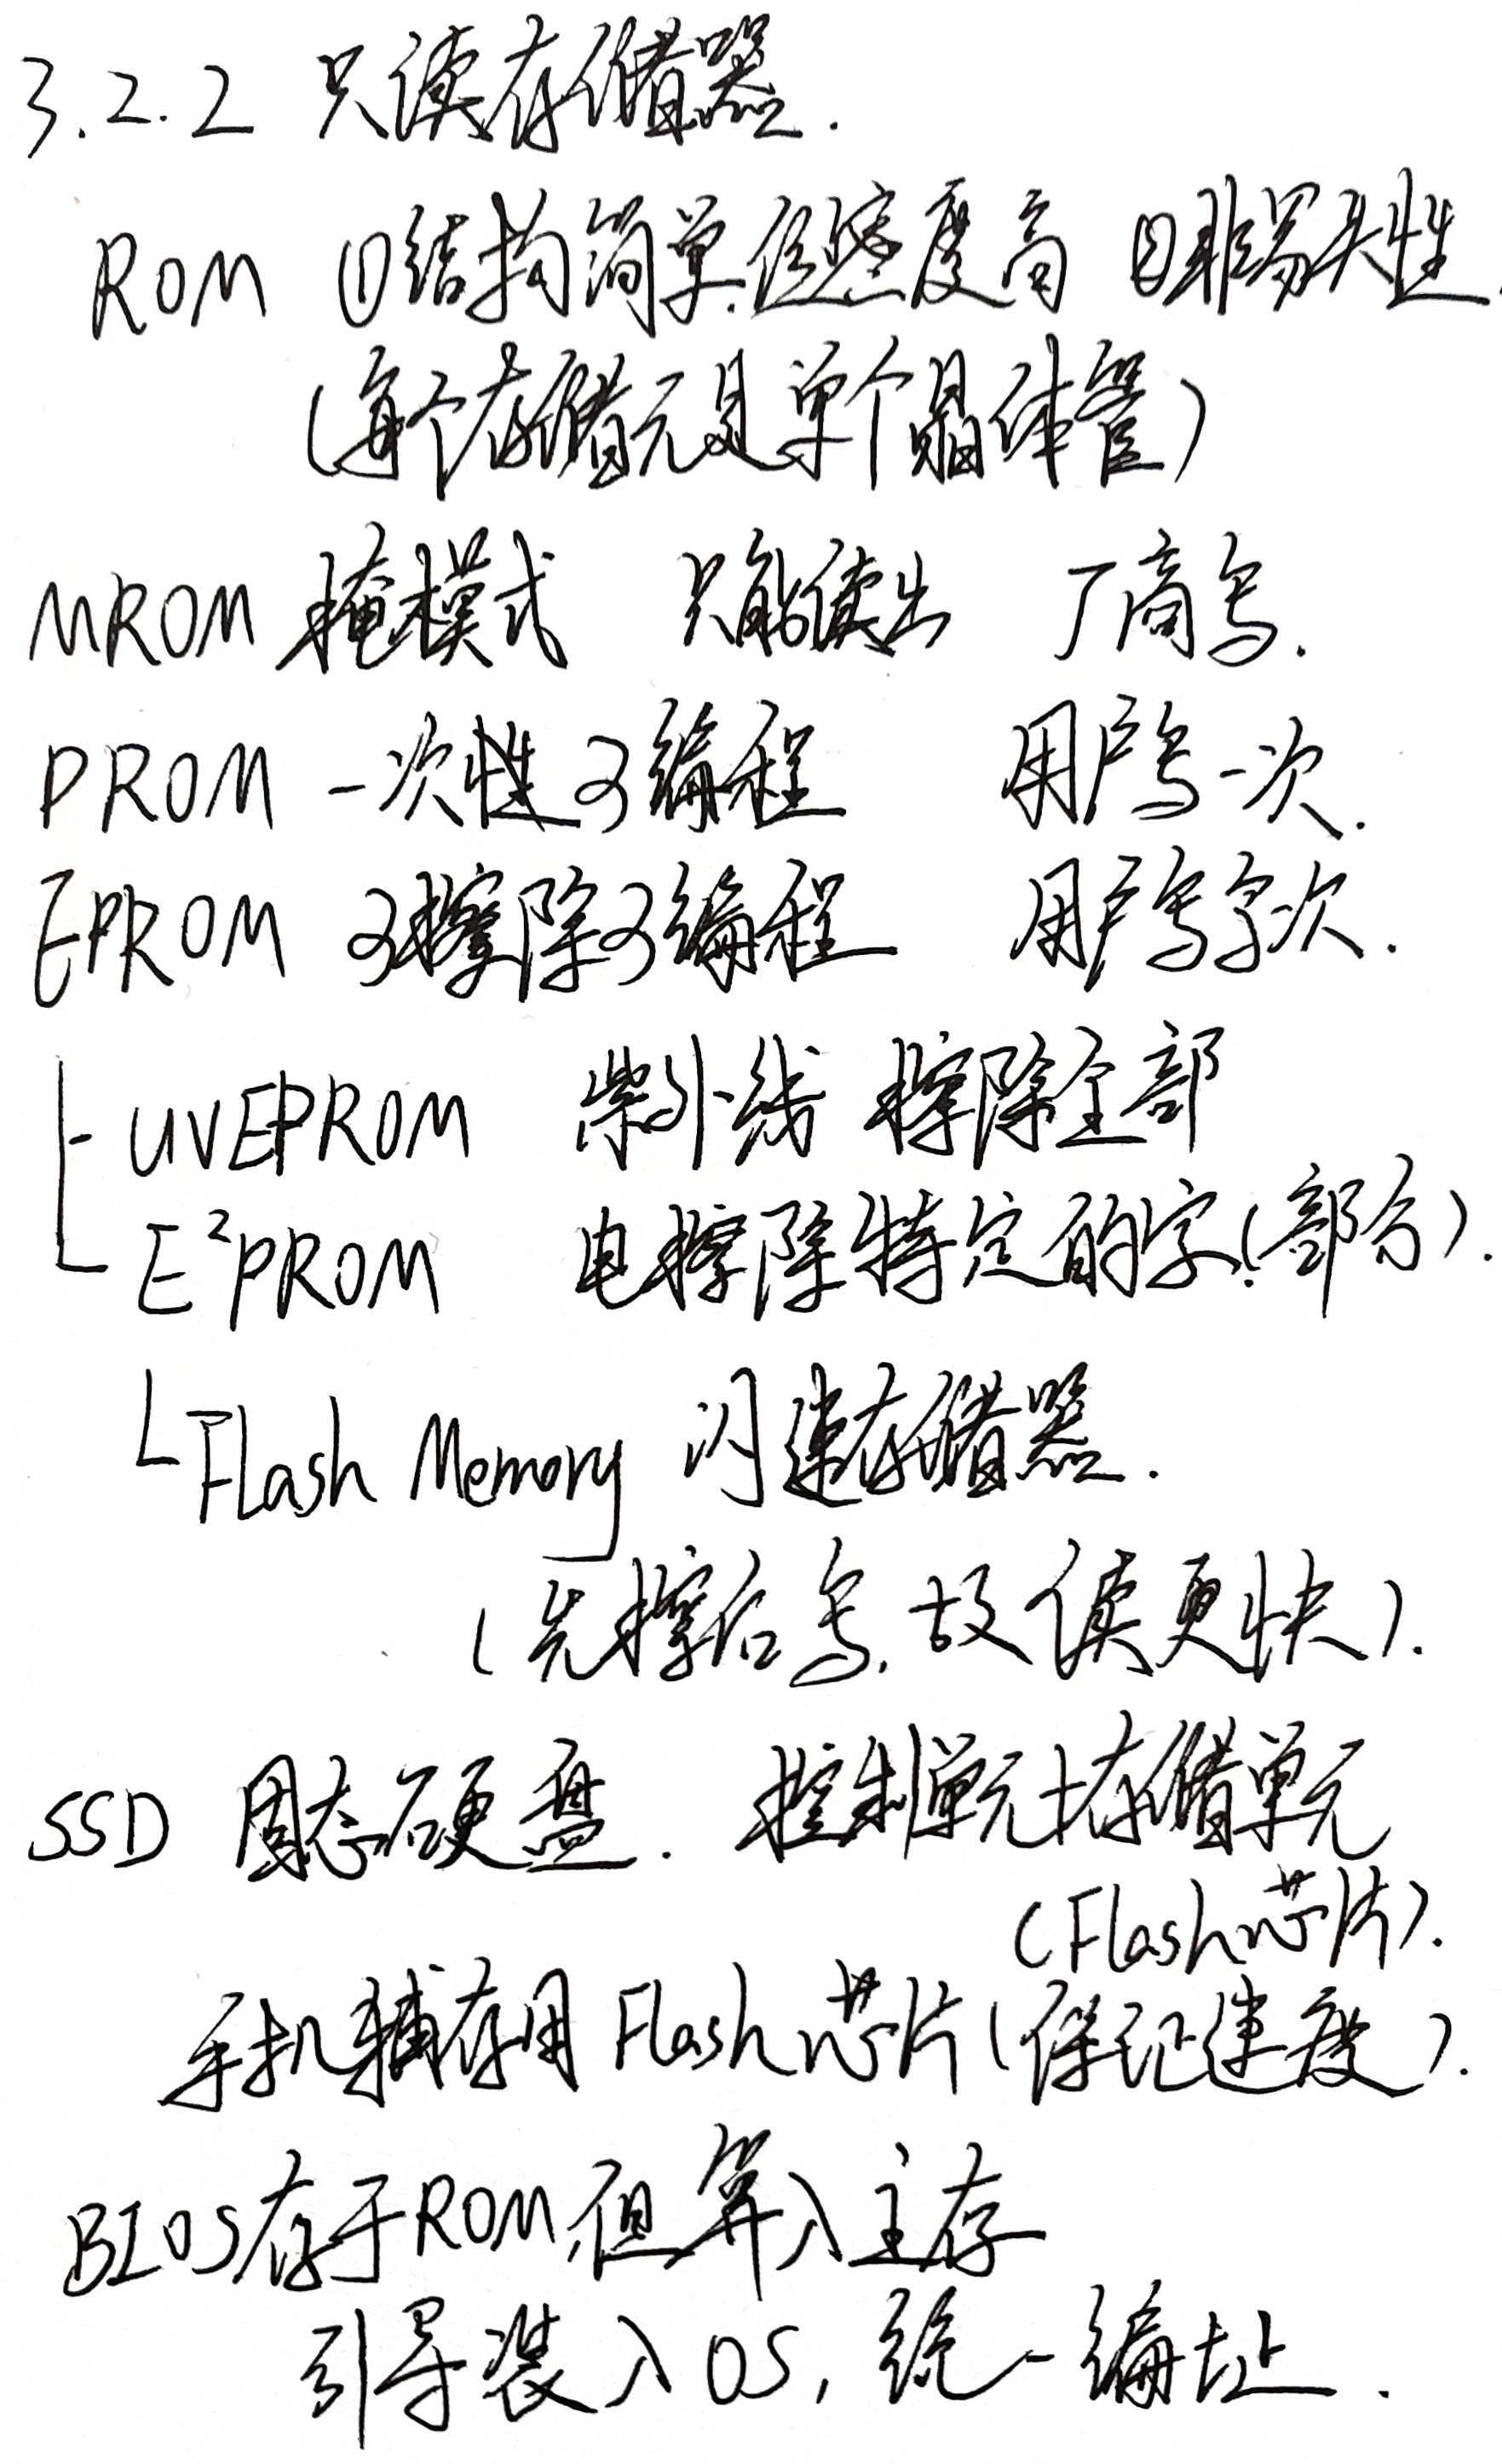 3.2.2 只读存储器.
ROM ①结构简单,位密度高 ②非易失性.
(每个存储元是单个晶体管)
MROM 掩模式 只能读出 厂商写.
PROM 一次性可编程 用户写一次.
EPROM 可擦除可编程 用户写多次.
UVEPROM 紫外线 擦除全部
E²PROM 电擦除特定的字(部分).
Flash Memory 闪速存储器.
(先擦后写,故读更快).
SSD 固态硬盘. 控制单元+存储单元
(Flash芯片).
手机辅存用Flash芯片(保证速度).
BIOS存于ROM,但算入主存
引导装入OS,统一编址.